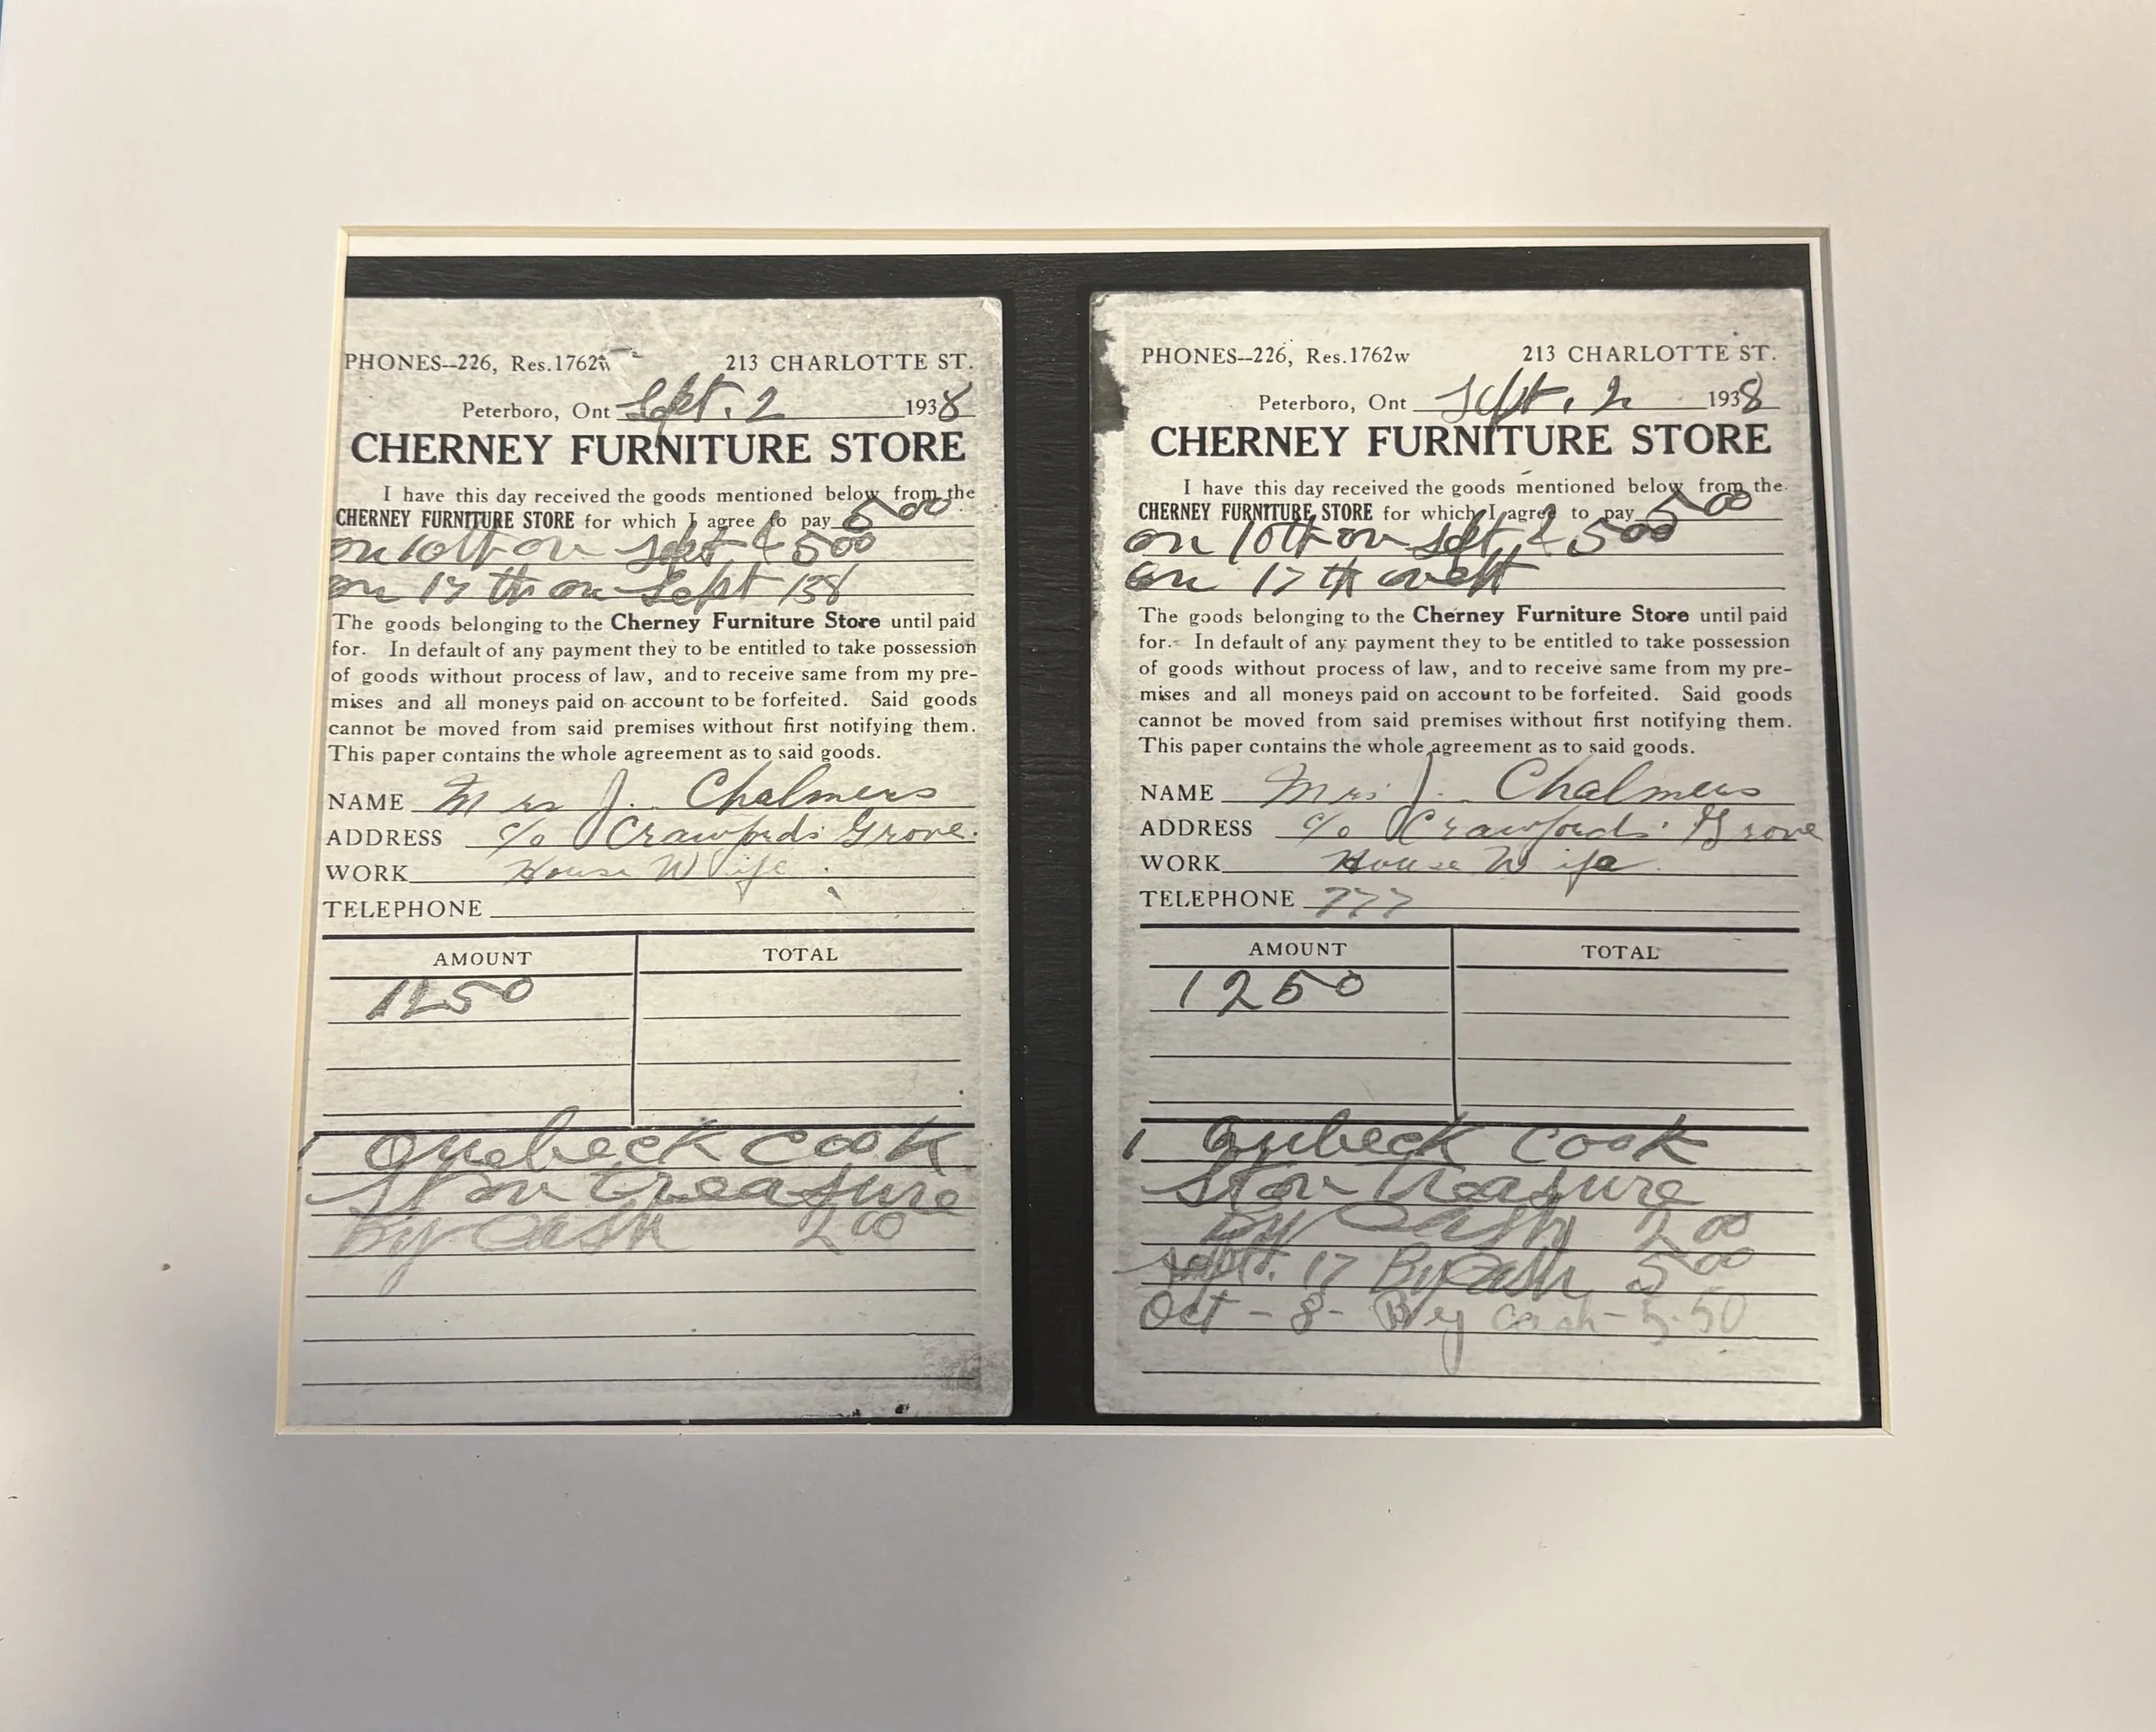 PHONES--226, Res.1762w 213 CHARLOTTE ST.
Peterboro, Ont Sept. 2 1938
CHERNEY FURNITURE STORE
I have this day received the goods mentioned below from the
CHERNEY FURNITURE STORE for which I agree to pay 500
on 10th on Sept & 500
on 17 th on Sept 138
The goods belonging to the Cherney Furniture Store until paid
for. In default of any payment they to be entitled to take possession
of goods without process of law, and to receive same from my pre-
mises and all moneys paid on account to be forfeited. Said goods
cannot be moved from said premises without first notifying them.
This paper contains the whole agreement as to said goods.
NAME Mrs J. Chalmers
ADDRESS c/o Crawfords Grove.
WORK House Wife
TELEPHONE
AMOUNT TOTAL
1250
1 Quebeck Cook
Stov treasure
By Cash 2 00
PHONES--226, Res.1762w 213 CHARLOTTE ST.
Peterboro, Ont Sept. 2 1938
CHERNEY FURNITURE STORE
I have this day received the goods mentioned below from the
CHERNEY FURNITURE STORE for which I agree to pay 500
on 10th on Sept & 500
on 17 th
The goods belonging to the Cherney Furniture Store until paid
for. In default of any payment they to be entitled to take possession
of goods without process of law, and to receive same from my pre-
mises and all moneys paid on account to be forfeited. Said goods
cannot be moved from said premises without first notifying them.
This paper contains the whole agreement as to said goods.
NAME Mrs J. Chalmers
ADDRESS c/o Crawfords' Grove
WORK House Wife
TELEPHONE 777
AMOUNT TOTAL
1250
1 Qubeck Cook
Stov Treasure
By Cash 2 00
Sept. 17 By Cash 5 00
Oct - 8 - By cash - 5.50